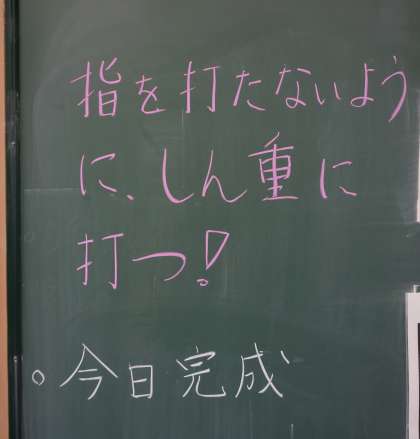 指を打たないよう
に、しん重に
打つ!
。今日完成